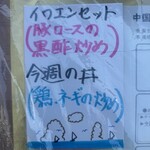 イワエンセット
(豚ロースの
黒酢炒め)
今週の丼
(鶏、ネギの炒め)
中国